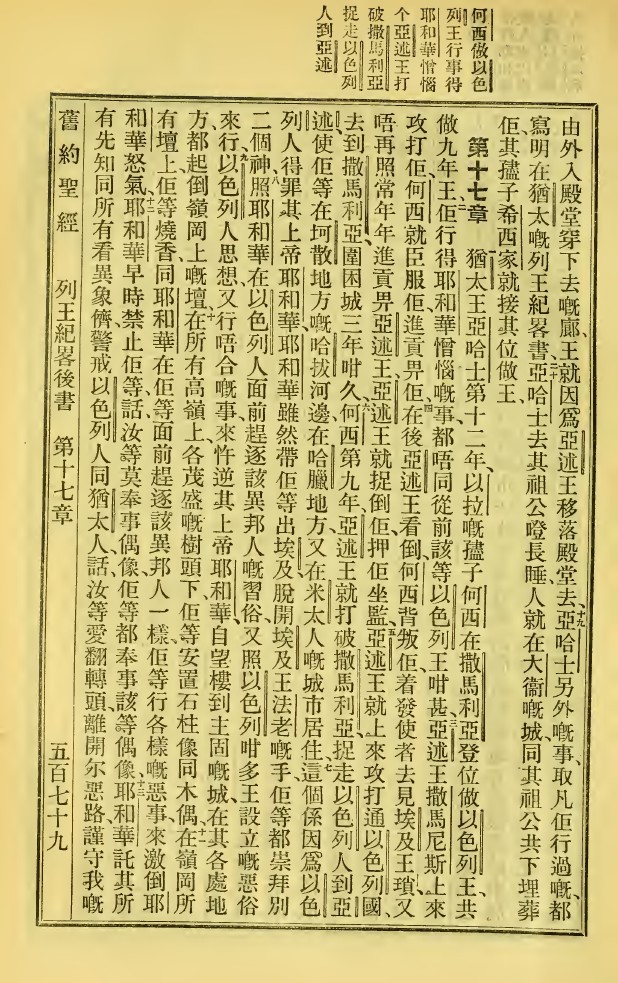 何西做以色
列王行事得
耶和華憎惱
个亞述王打
破撒馬利亞
捉走以色列
人到亞述
由外入殿堂穿下去嘅廊、王就因爲亞述王移落殿堂去、十九亞哈士另外嘅事、取凡佢行過嘅都
寫明在猶太嘅列王紀畧書、二十亞哈士去其祖公噔長睡、人就在大衞嘅城、同其祖公共下埋葬
佢、其孻子希西家就接其位做王、
第十七章 猶太王亞哈士第十二年、以拉嘅孻子何西在撒馬利亞登位做以色列王、共
做九年王、二佢行得耶和華憎惱嘅事、都唔同從前該等以色列王咁甚、三亞述王撒馬尼斯上來
攻打佢、何西就臣服佢、進貢畀佢、四在後亞述王看倒何西背叛佢、着發使者去見埃及王瑣、又
唔再照常年年進貢畀亞述王、亞述王就捉倒佢、押佢坐監、五亞述王就上來攻打通以色列國、
去到撒馬利亞、圍困城三年咁久、六何西第九年、亞述王就打破撒馬利亞、捉走以色列人到亞
述、使佢等在坷散地方嘅哈拔河邊、在哈臘地方、又在米太人嘅城市居住、七這個係因爲以色
列人得罪其上帝耶和華、耶和華雖然帶佢等出埃及、脫開埃及王法老嘅手、佢等都崇拜別
二個神、八照耶和華在以色列人面前趕逐該異邦人嘅習俗、又照以色列咁多王設立嘅惡俗
來行、九以色列人思想、又行唔合嘅事來忤逆其上帝耶和華、自望樓到主固嘅城、在其各處地
方都起倒嶺岡上嘅壇、十在所有高嶺上、各茂盛嘅樹頭下、佢等安置石柱像同木偶、十一在嶺岡所
有壇上佢等燒香、同耶和華在佢等面前趕逐該異邦人一樣、佢等行各樣嘅惡事來激倒耶
和華怒氣、十二耶和華早時禁止佢等話、汝等莫奉事偶像、佢等都奉事該等偶像、十三耶和華託其所
有先知同所有看異象儕、警戒以色列人同猶太人、話、汝等愛翻轉頭離開尔惡路、謹守我嘅
舊約聖經 列王紀畧後書 第十七章 五百七十九